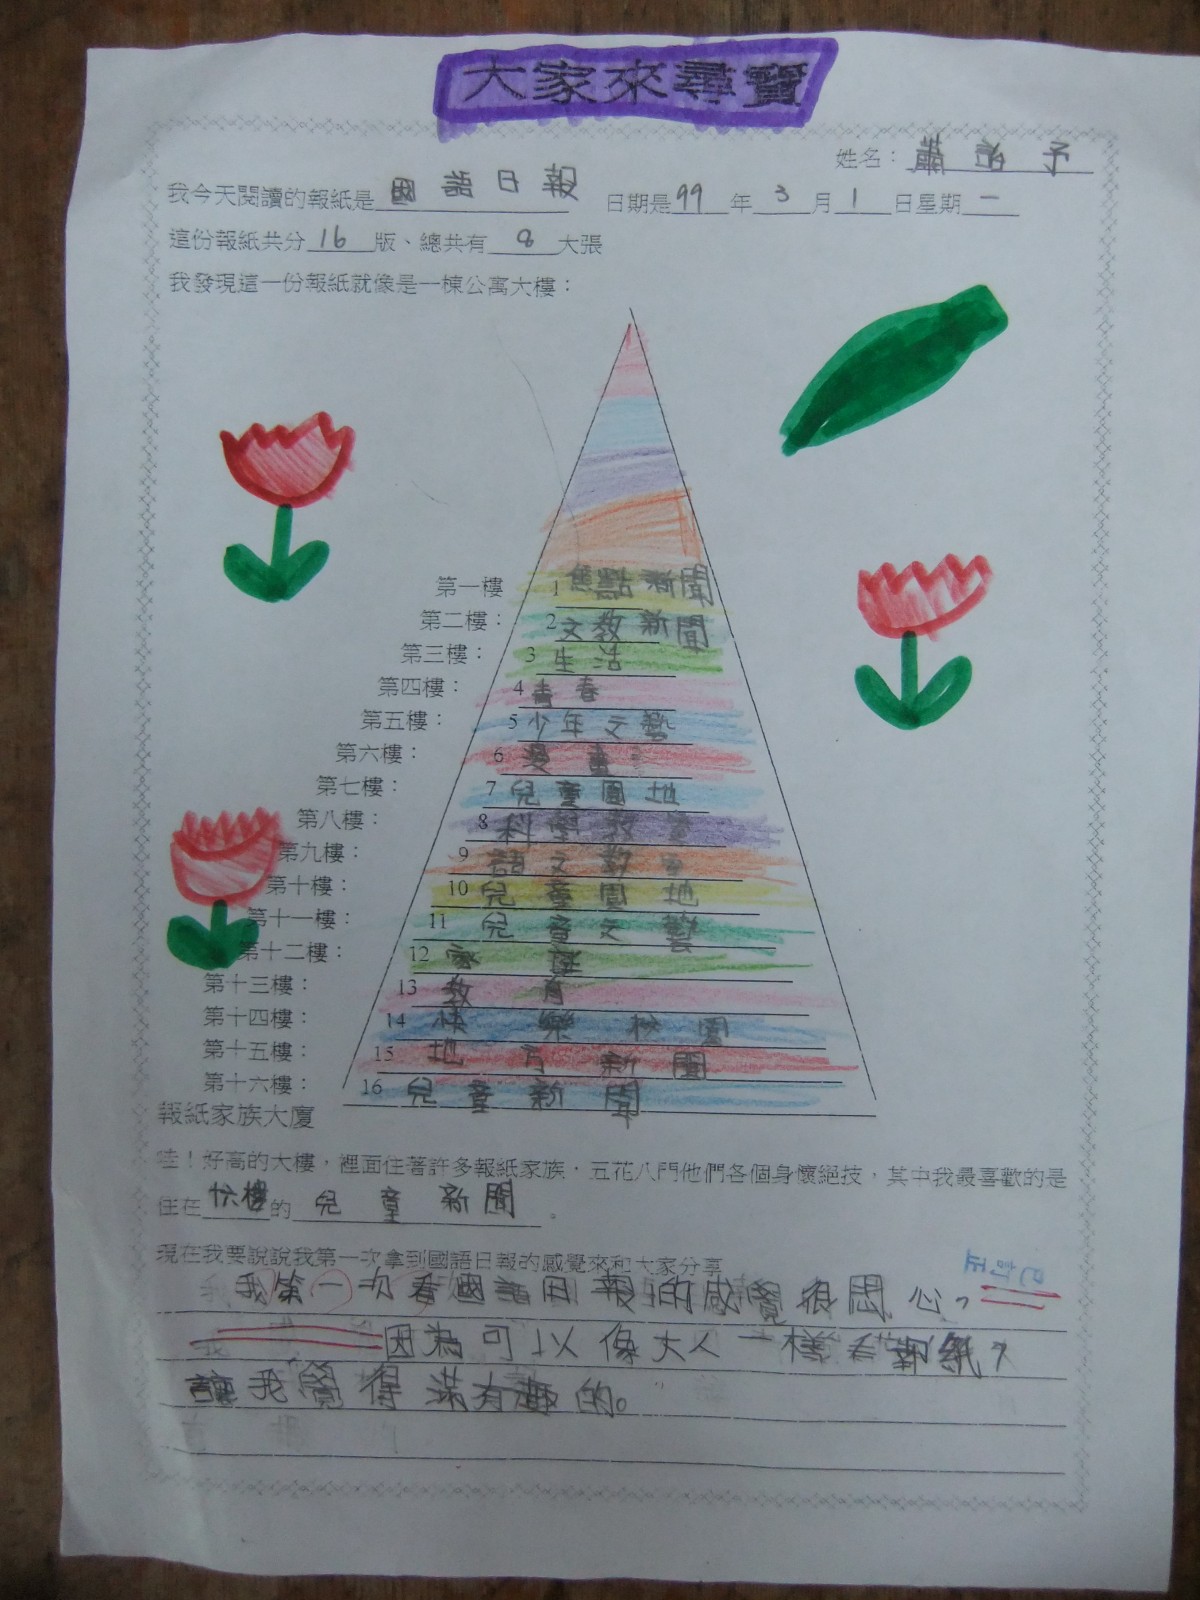 大家來尋寶
姓名：蕭 予
我今天閱讀的報紙是國語日報 日期是99年3月1日星期一
這份報紙共分16版、總共有8大張
我發現這一份報紙就像是一棟公寓大樓：
第一樓 1 焦點新聞
第二樓： 2 文教新聞
第三樓： 3 生活
第四樓： 4 青春
第五樓： 5 少年文藝
第六樓： 6 漫畫
第七樓： 7 兒童園地
第八樓： 8 科學教室
第九樓： 9 語文教室
第十樓： 10 兒童園地
第十一樓： 11 兒童文藝
第十二樓： 12 家庭
第十三樓： 13 教育
第十四樓： 14 快樂校園
第十五樓： 15 地方新聞
第十六樓： 16 兒童新聞
報紙家族大廈
哇！好高的大樓，裡面住著許多報紙家族，五花八門他們各個身懷絕技，其中我最喜歡的是
住在 樓的兒童新聞。
現在我要說說我第一次拿到國語日報的感覺來和大家分享
已訂正
我第一次看國語日報的感覺很悶心，
因為可以像大人一樣看報紙，
讓我覺得滿有趣的。